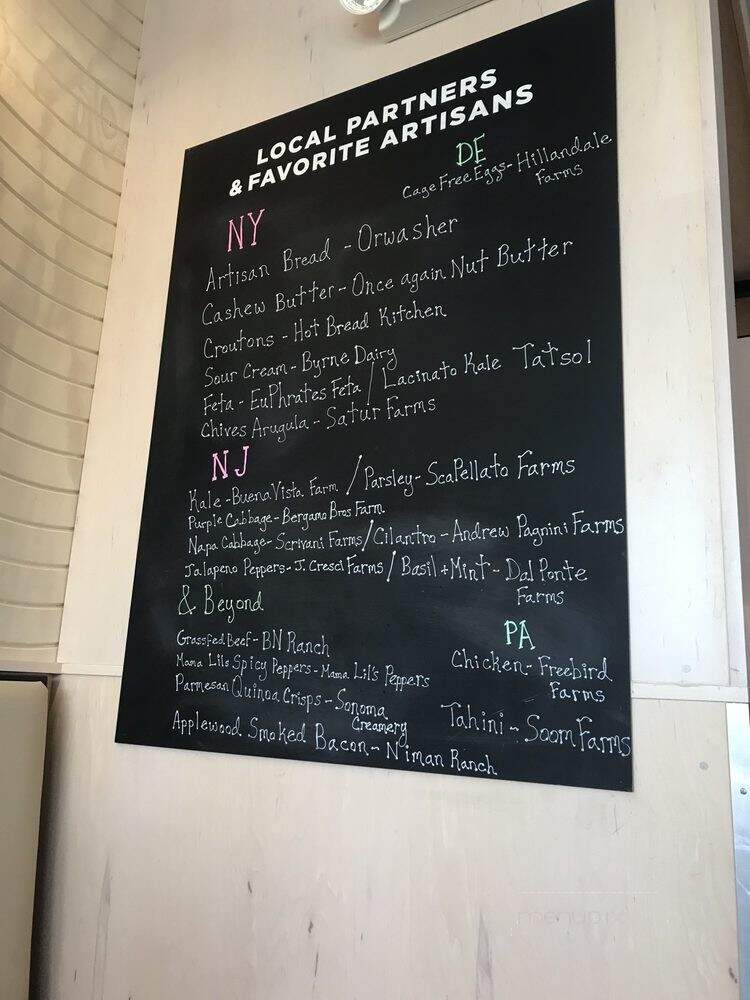 LOCAL PARTNERS
& FAVORITE ARTISANS
DE
Cage Free Eggs - Hillandale
Farms
NY
Artisan Bread - Orwasher
Cashew Butter - Once again Nut Butter
Croutons - Hot Bread Kitchen
Sour Cream - Byrne Dairy
Feta - EuPhrates Feta / Lacinato Kale Tatsol
Chives Arugula - Satur Farms
NJ
Kale - Buena Vista Farm / Parsley - ScaPellato Farms
Purple Cabbage - Bergamo Bros Farm
Napa Cabbage - Scrivani Farms / Cilantro - Andrew Pagnini Farms
Jalapeno Peppers - J. Cresci Farms / Basil + Mint - Dal Ponte
Farms
& Beyond
Grassfed Beef - BN Ranch
Mama Lils Spicy Peppers - Mama Lil's Peppers
Parmesan Quinoa Crisps - Sonoma
Creamery
Applewood Smoked Bacon - Niman Ranch
PA
Chicken - Freebird
Farms
Tahini - Soom Farms
menupix